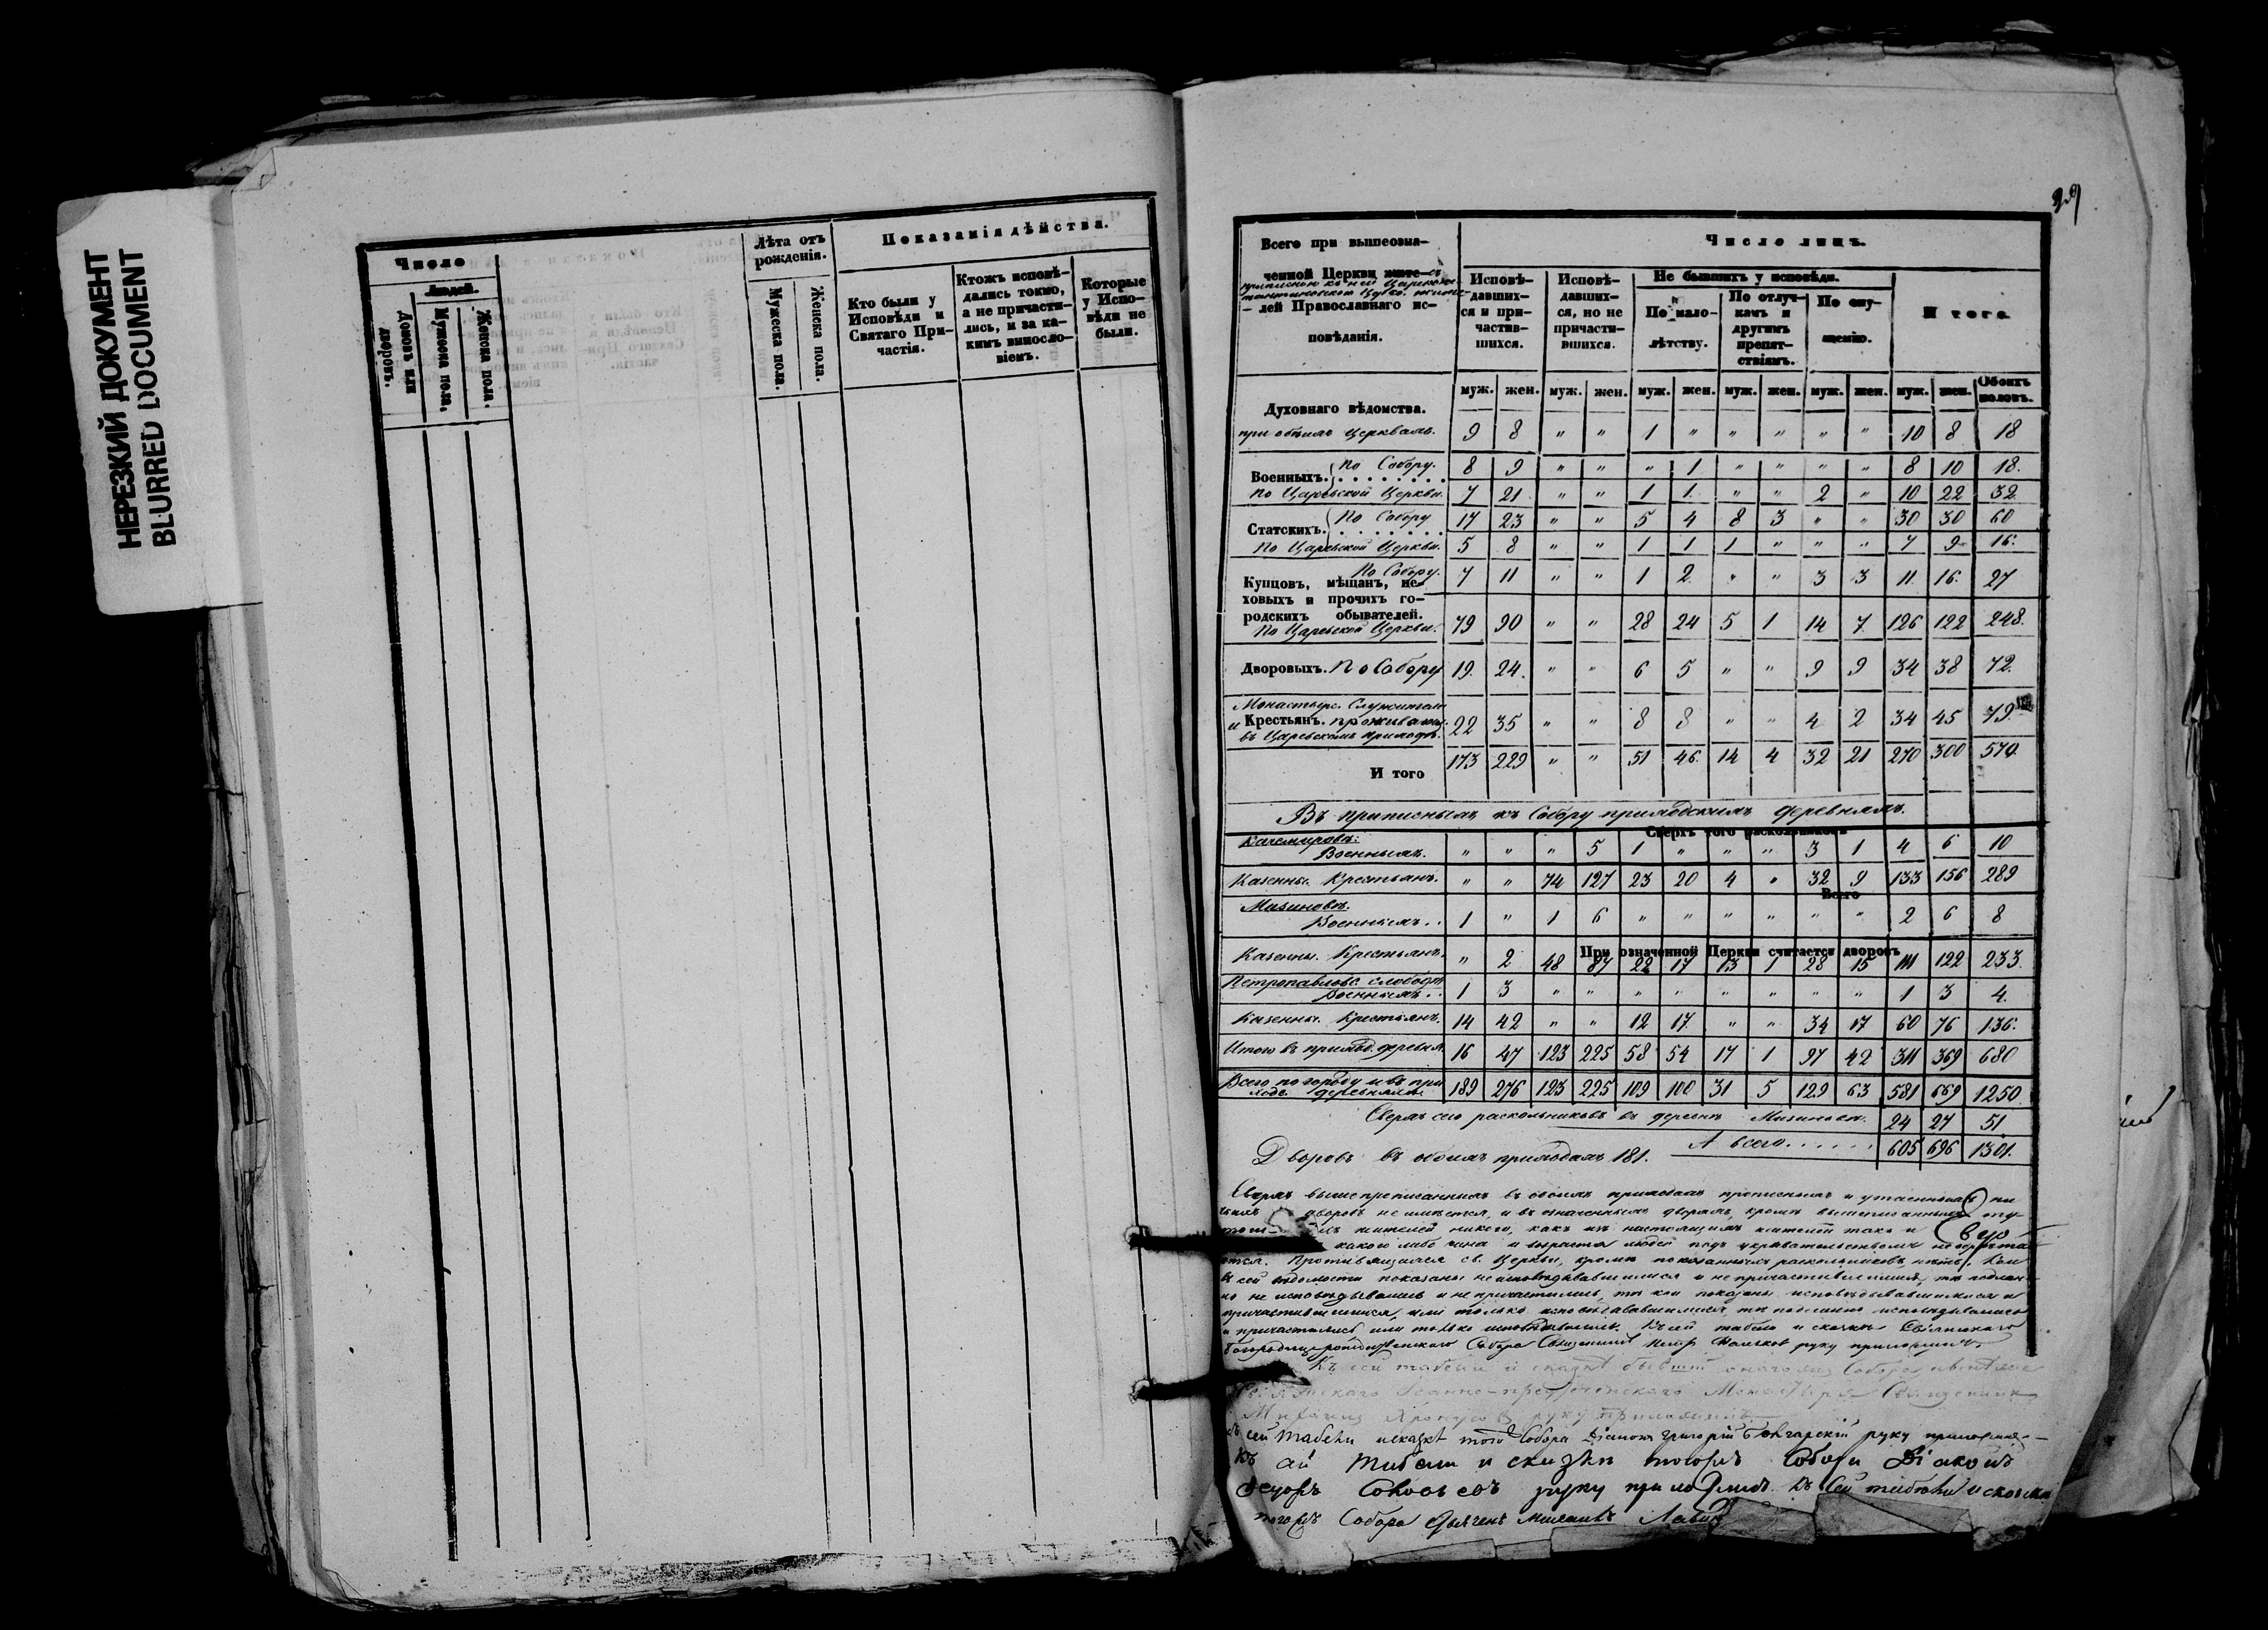 НЕРЕЗКИЙ ДОКУМЕНТ
BLURRED DOCUMENT
Число
людей.
Домовъ или дворовъ.
Мужеска пола.
Женска пола.
Лѣта отъ рожденія.
Мужеска пола.
Женска пола.
Показанія дѣйства.
Кто были у Исповѣди и Святаго Причастія.
Ктожъ исповѣдались токмо, а не причастились, и за какимъ винословіемъ.
Которые у Исповѣди не были.
Всего при вышеозначенной Церкви
лей Православнаго исповѣданія.
Число лицъ.
Исповѣдавшихся и причастившихся.
Исповѣдавшихся, но не причастившихся.
Не бывшихъ у исповѣди.
По малолѣтству.
По отлучкамъ и другимъ препятствіямъ.
По опущенію.
И того
муж. жен. муж. жен. муж. жен. муж. жен. муж. жен. муж. жен. Обоихъ половъ.
Духовнаго вѣдомства.
при обѣихъ Церквахъ. 9 8 " " 1 " " " " " 10 8 18
Военныхъ. По Собору. 8 9 " " " 1 " " " " 8 10 18.
По Царевской Церкви. 7 21 " " 1 1 " " 2 " 10 22 32
Статскихъ. По Собору 17 23 " " 5 4 8 3 " " 30 30 60
По Царевской Церкви. 5 8 " " 1 1 1 " " " 7 9 16.
По Собору.
Купцовъ, мѣщанъ, цеховыхъ и прочихъ городскихъ обывателей. 7 11 " " 1 2 " " 3 3 11 16. 27
По Царевской Церкви. 79 90 " " 28 24 5 1 14 7 126 122 248.
Дворовыхъ. По Собору 19. 24. " " 6 5 " " 9 9 34 38 72.
Монастырс. Служител.
и Крестьянъ. проживающ. въ Царевскомъ приходѣ. 22 35 " " 8 8 " " 4 2 34 45 79.
И того 173 229 " " 51 46 14 4 32 21 270 300 570.
Въ приписныхъ къ Собору приходскихъ деревняхъ.
Сверхъ того раскольниковъ
Военныхъ. " " " 5 1 " " " 3 1 4 6 10
Казенны. Крестьянъ. " " 74 127 23 20 4 " 32 9 133 156 289
Всего
Мизиновѣ.
Военныхъ.. 1 " 1 6 " " " " " " 2 6 8
При означенной Церкви считается дворовъ
Казенны. Крестьянъ. " 2 48 87 22 17 13 1 28 15 111 122 233.
Петропавловс. слободѣ
Военныхъ.. 1 3 " " " " " " " " 1 3 4.
Казенны. Крестьянъ. 14 42 " " 12 17 " " 34 17 60 76 136.
Итого въ приход. деревня. 16 47 123 225 58 54 17 1 97 42 311 369 680
Всего по городу и въ приход. деревнямъ. 189 276 123 225 109 100 31 5 129 63 581 669 1250
Сверхъ сего раскольниковъ въ деревнѣ Мизиновѣ. 24 27 51
А всего...... 605 696 1301.
Дворовъ въ обоихъ приходахъ 181.
Сверхъ вышепреписанныхъ въ обоихъ приходахъ прописныхъ и утаенныхъ ни
дворовъ не имѣется, и въ означенныхъ дворахъ, кромѣ вышеписанныхъ
жителей никого, какъ изъ настоящихъ жителей тако и
какого либо чина и возраста людей подъ укрывательствомъ не
Противящихся св. Церкви, кромѣ показанныхъ раскольниковъ, нѣтъ. Кои
въ сей вѣдомости показаны неисповѣдывавшимися и непричастившимися, тѣ подлин-
но не исповѣдывались и не причастились, тѣ кои показаны исповѣдывавшимися и
причастившимися, или только исповѣдывавшимися, тѣ подлинно исповѣдывались
и причастились или только исповѣдывались. Къ сей табели и сказкѣ Свіяжскаго
Богородицерождественскаго Собора Священникъ Петръ руку приложилъ.
Къ сей табели и сказкѣ бывшій онагожъ Собора, а нынѣ
Свіяжскаго Іоанно-предтеченскаго Монастыря Священникъ
руку приложилъ
Къ сей табели и сказкѣ того Собора Діаконъ Григорій руку приложилъ
Къ сей табели и сказкѣ тогожъ Собора Діаконъ
Ѳедоръ руку приложилъ. Къ сей табели и сказкѣ
тогожъ Собора